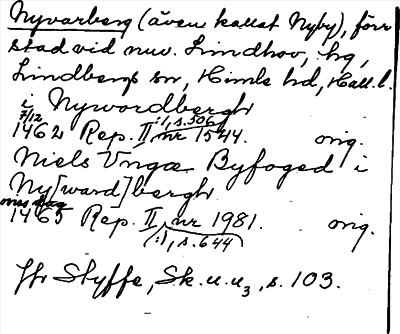 Nyvarberg (även kallat Nyby), förr
stad vid nuv. Lindhov, hg,
Lindbergs sn, Himle hd, Hall. l.
i Nywordbergh
7/12 :1, s.306
1462 Rep. II nr 1544. orig.
Niels Unge Byfoged i
Ny[ward]bergh
onsdag
1465 Rep. II, nr 1981. orig.
(:1, s. 644)
Jfr Styffe, Sk.u.u3, s. 103.